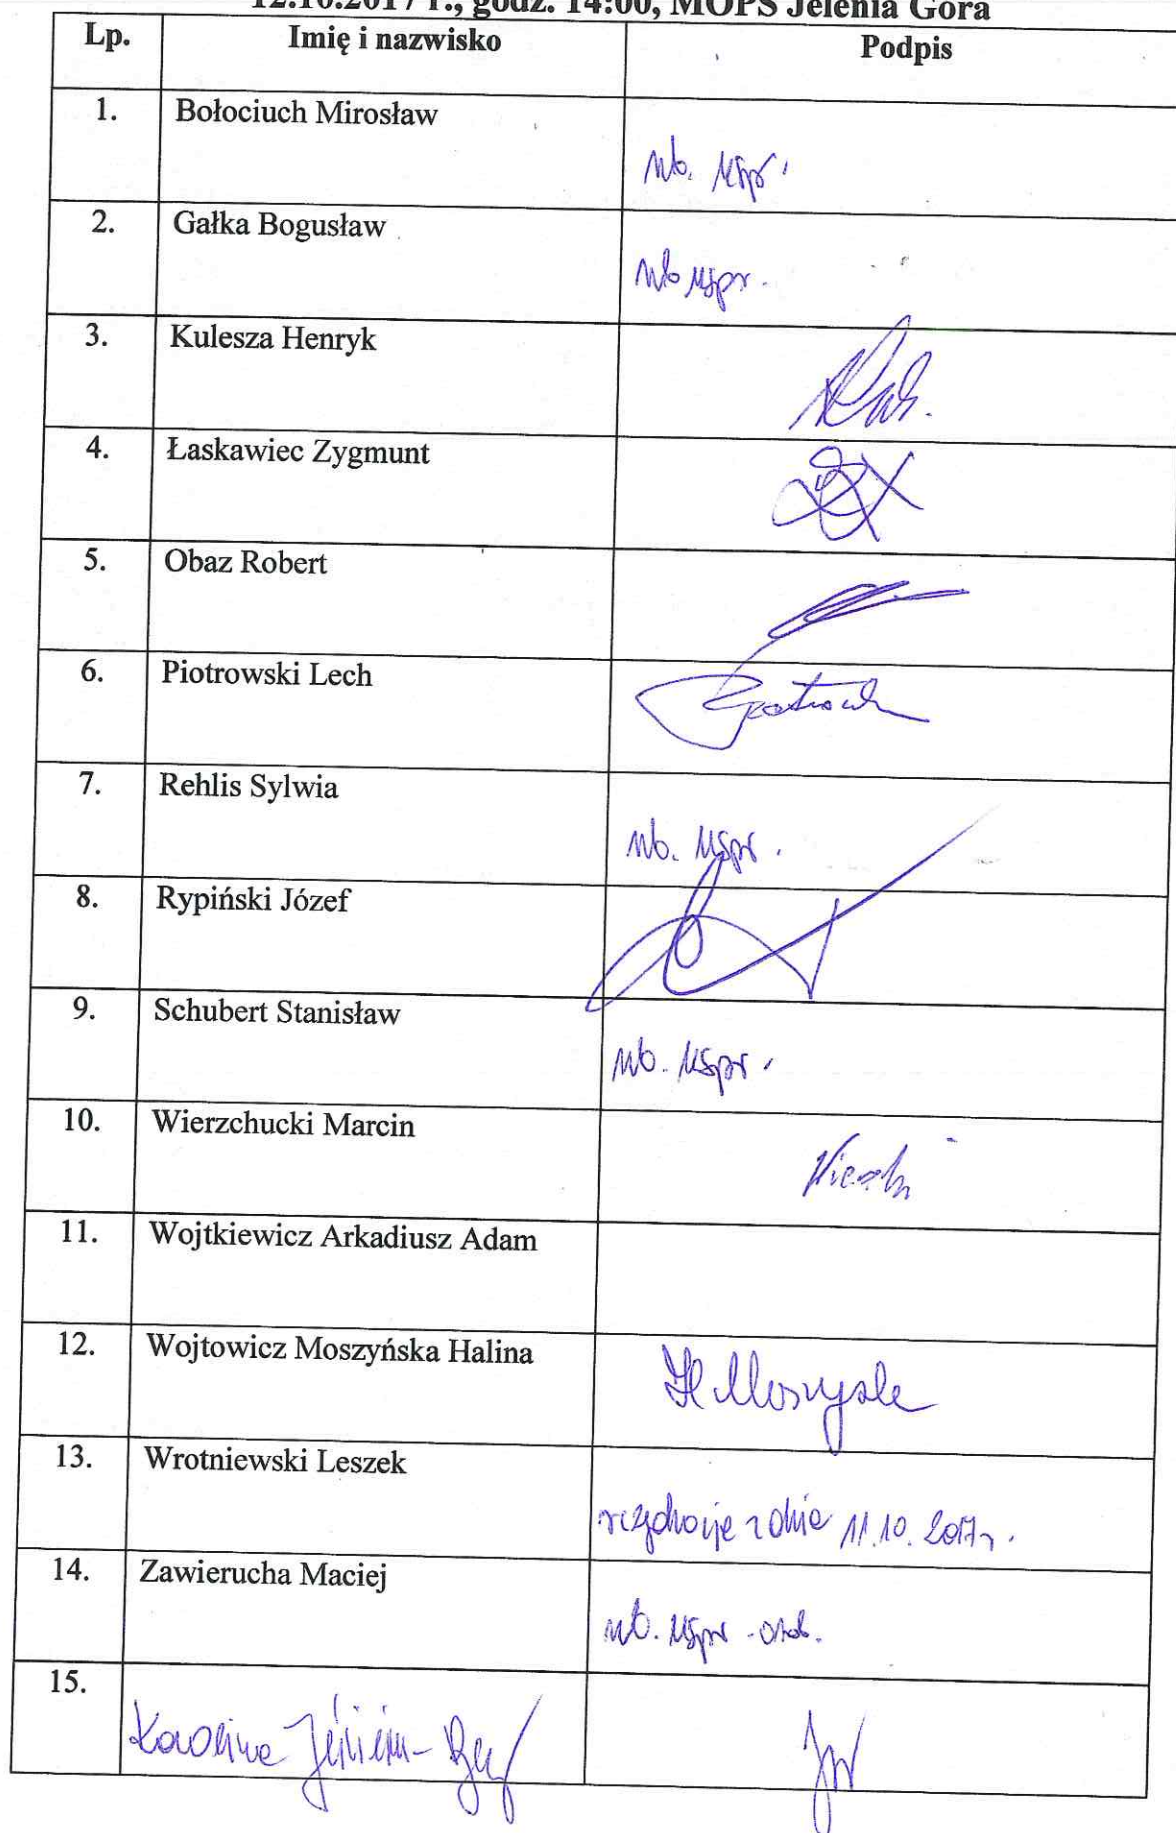 12.10.2017 r., godz. 14:00, MOPS Jelenia Góra
Lp. Imię i nazwisko Podpis
1. Bołociuch Mirosław nb. uspr.
2. Gałka Bogusław nb uspr.
3. Kulesza Henryk
4. Łaskawiec Zygmunt
5. Obaz Robert
6. Piotrowski Lech
7. Rehlis Sylwia nb. uspr.
8. Rypiński Józef
9. Schubert Stanisław nb. uspr.
10. Wierzchucki Marcin
11. Wojtkiewicz Arkadiusz Adam
12. Wojtowicz Moszyńska Halina
13. Wrotniewski Leszek rezygnacja z dnia 11.10.2017r.
14. Zawierucha Maciej nb. uspr.
15. Karolina